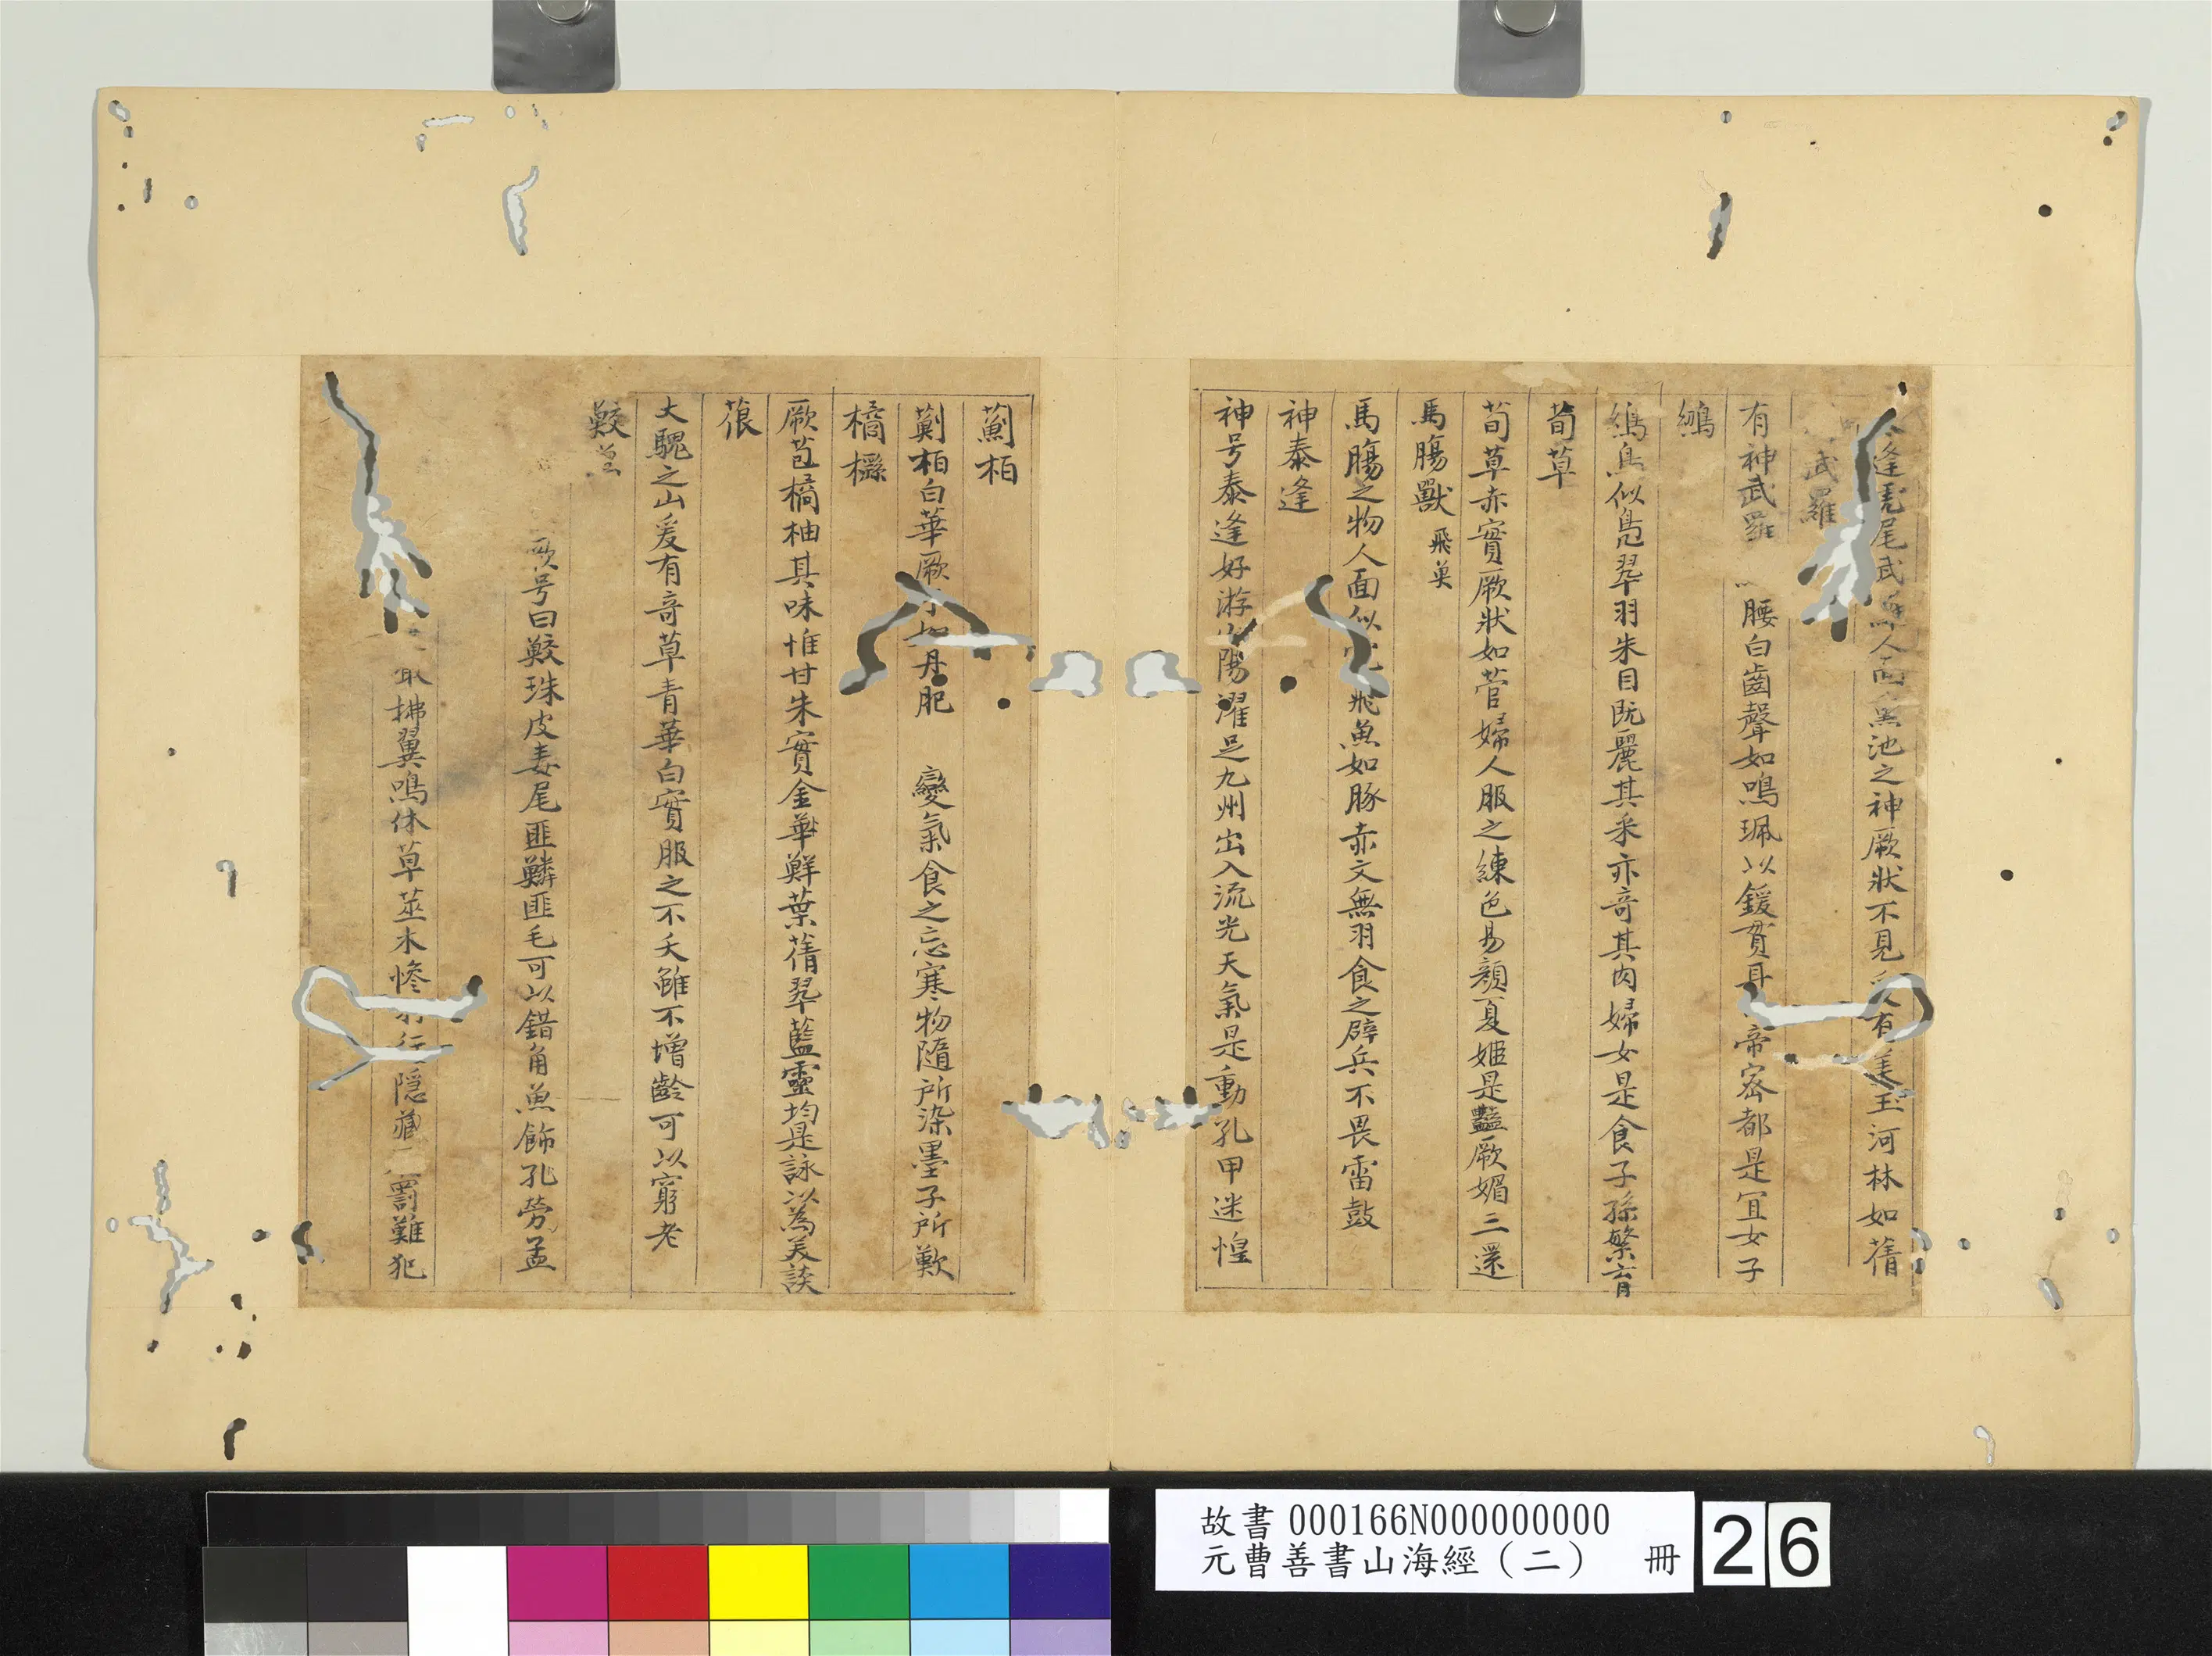 逢虎尾武人面黑池之神厥狀不見有美玉河林如蒨
武羅
有神武羅腰白齒聲如鳴珮以鍰貫耳帝宻都是宜女子
鴢
鳥似鳧翠羽朱目旣麗其釆亦竒其肉婦女是食子孫繁育
荀草
荀草赤實厥狀如菅婦人服之練色易顔夏姬是豔厥媚三還
馬腸獸 飛魚
馬腸之物人面似飛魚如豚赤文無羽食之辟兵不畏雷鼓
神泰逢
神号泰逢好游山陽濯足九州出入流光天氣是動孔甲迷惶
薊柏
薊柏白華厥丹肥變氣食之忘寒物隨所染墨子所歎
橘櫾
厥苞橘柚其味惟甘朱實金華鮮葉蒨翠藍靈均是詠以為美談
蒗
大騩之山爰有竒草青華白實服之不夭雖不增齡可以窮老
鮫
号曰鮫珠皮毒尾匪鱗匪毛可以錯角魚飾孔勞孟
拂翼鳴休草莖木慘行隱藏罰難犯
故書000166N000000000
元曹善書山海經（二） 冊 26